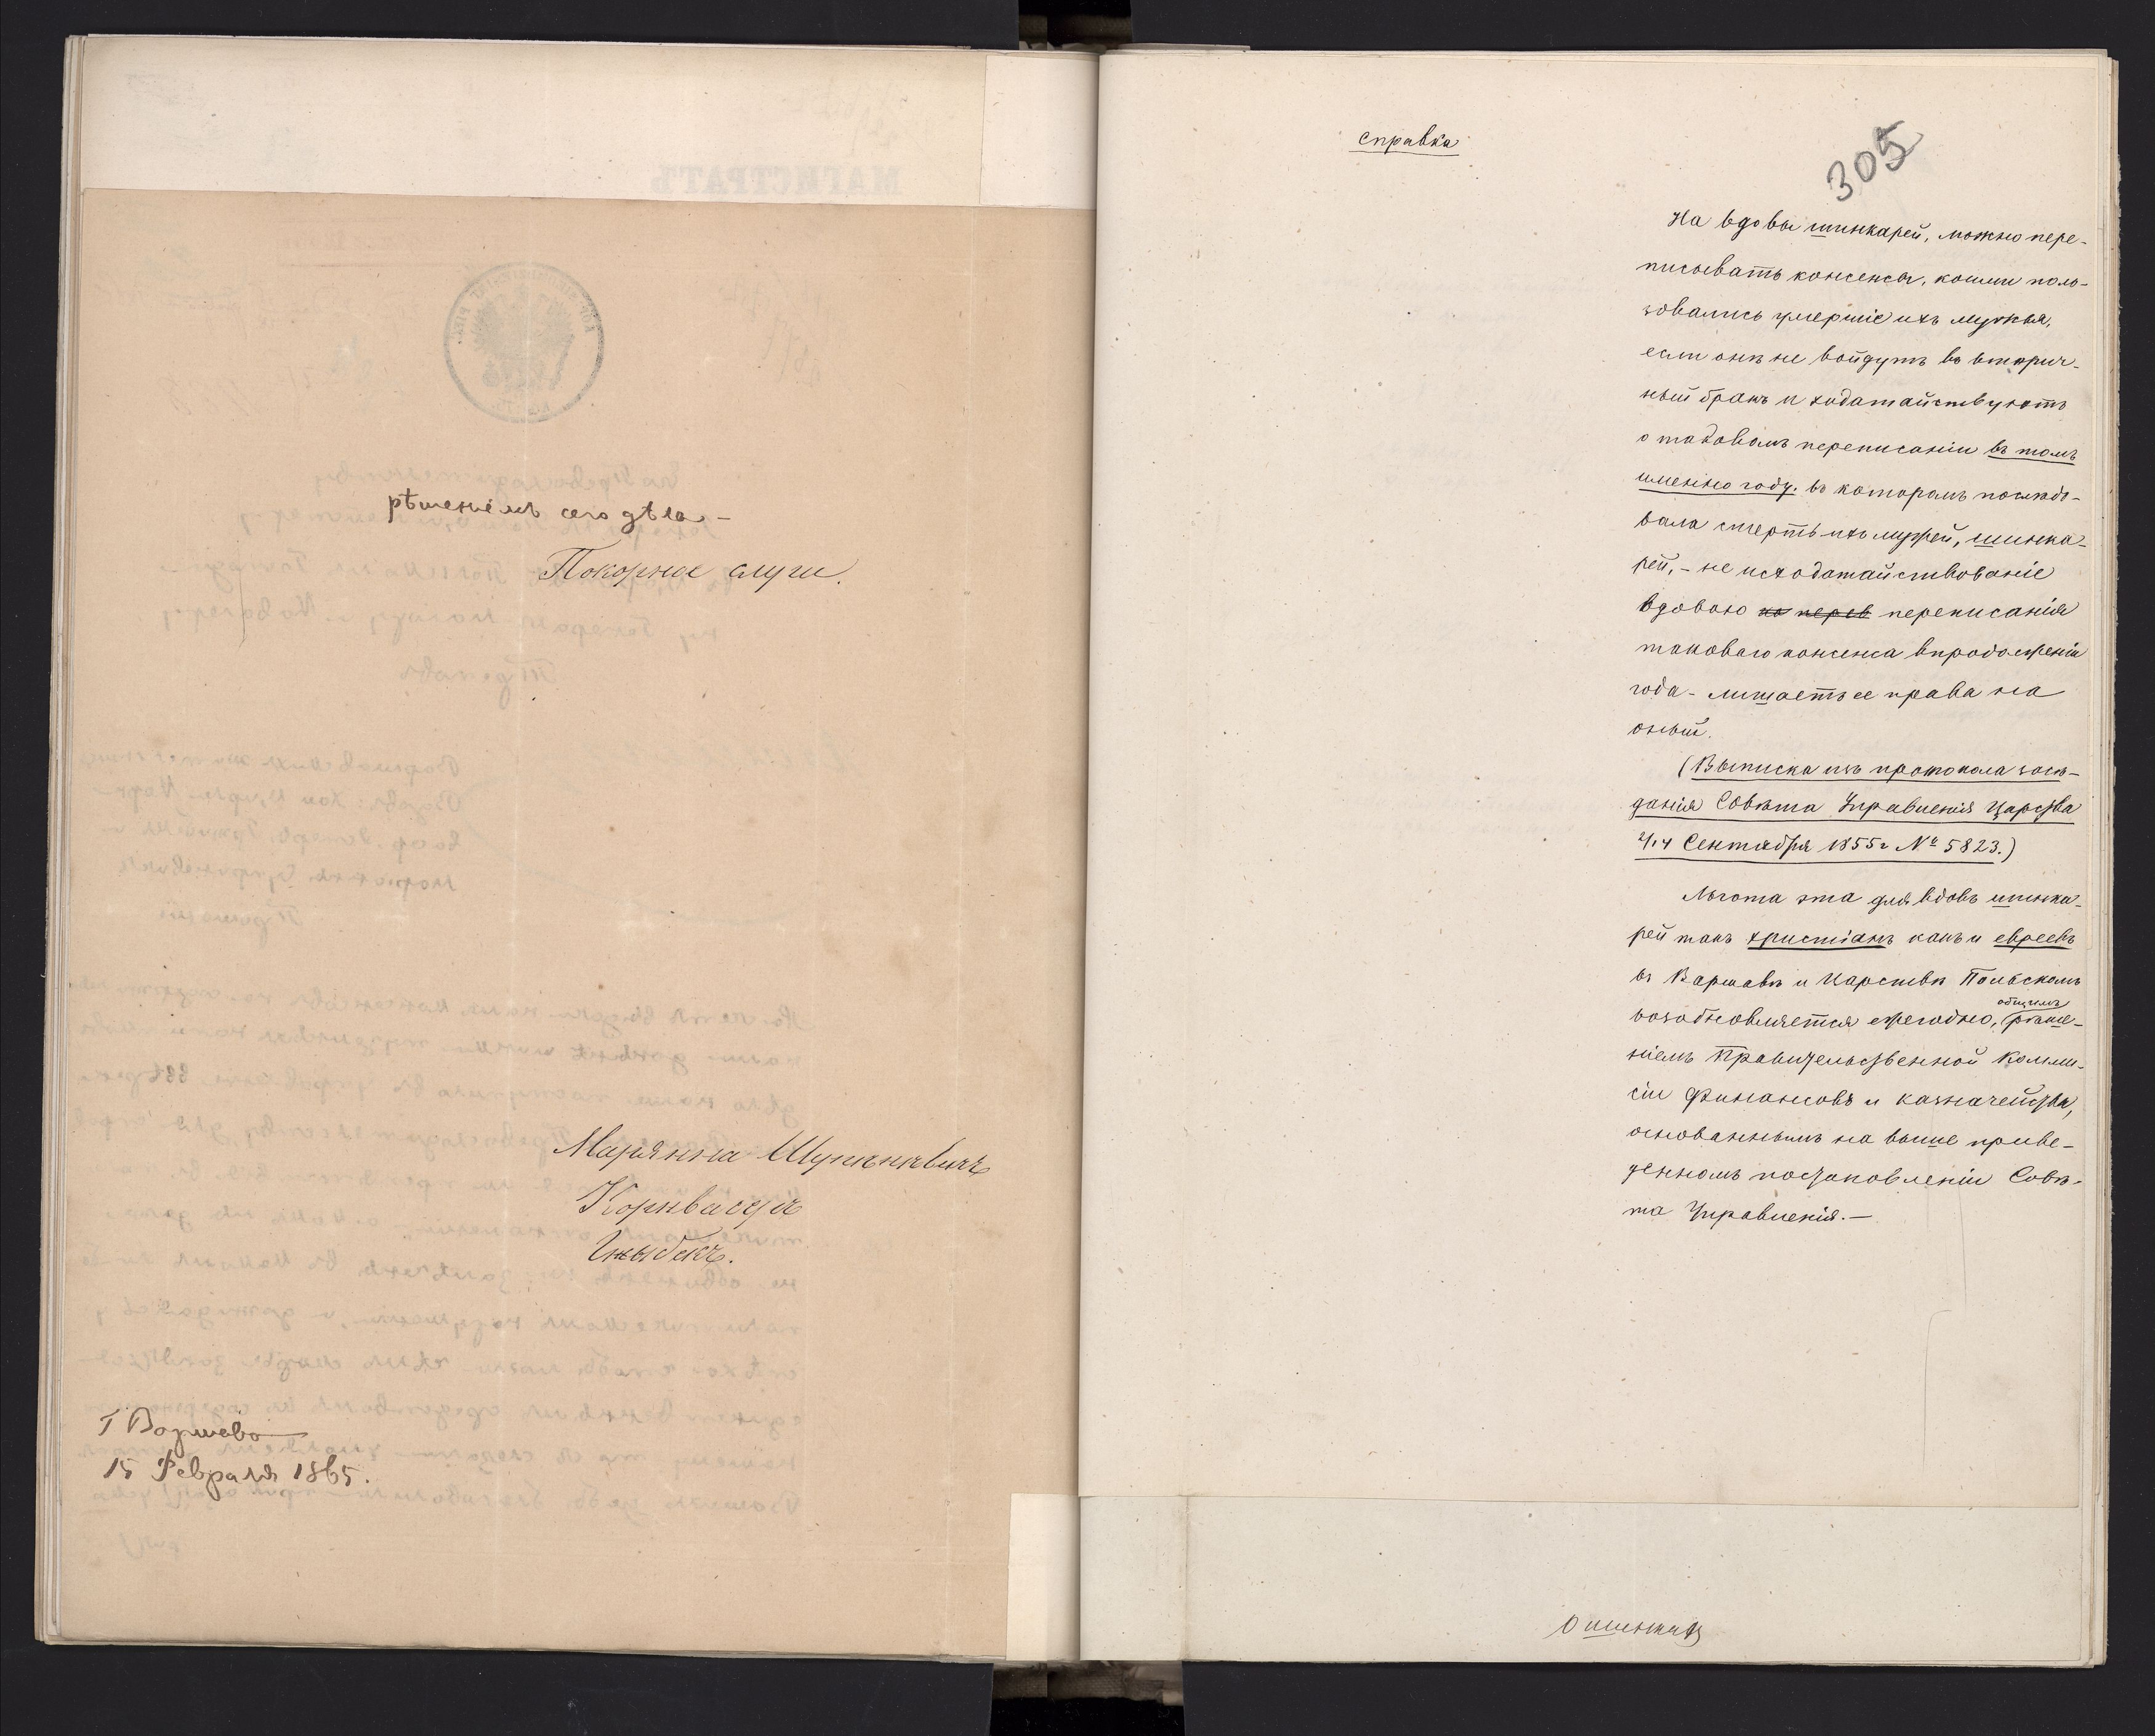 рѣшеніемъ сего дѣла –
Покорные слуги.
Марянна
Корнвассеръ
Г Варшава
15 Февраля 1865.
справка
305
На вдовы шинкарей, можно пере-
писывать консенсы, коими поль-
зовались умершіе ихъ мужья,
если онѣ не войдутъ во вторич-
ный бракъ и ходатайствуютъ
о таковомъ переписаніи въ томъ
именно году, въ которомъ послѣдо-
вала смерть ихъ мужей, шинка-
рей, – не исходатайствованіе
вдовою на перев переписанія
таковаго консенса впродолженіи
года – лишаетъ ее права на
оный.
(Выписка изъ протокола засѣ-
данія Совѣта Управленія Царства
2/14 Сентября 1855 г № 5823.)
Льгота эта для вдовъ шинка-
рей такъ христіанъ какъ и евреевъ
въ Варшавѣ и Царствѣ Польскомъ
возобновляется ежегодно, общимъ рѣше-
ніемъ Правительственной Комми-
сіи Финансовъ и казначейства,
основаннымъ на выше приве-
денномъ постановленіи Совѣ-
та Управленія. —
О шинкахъ